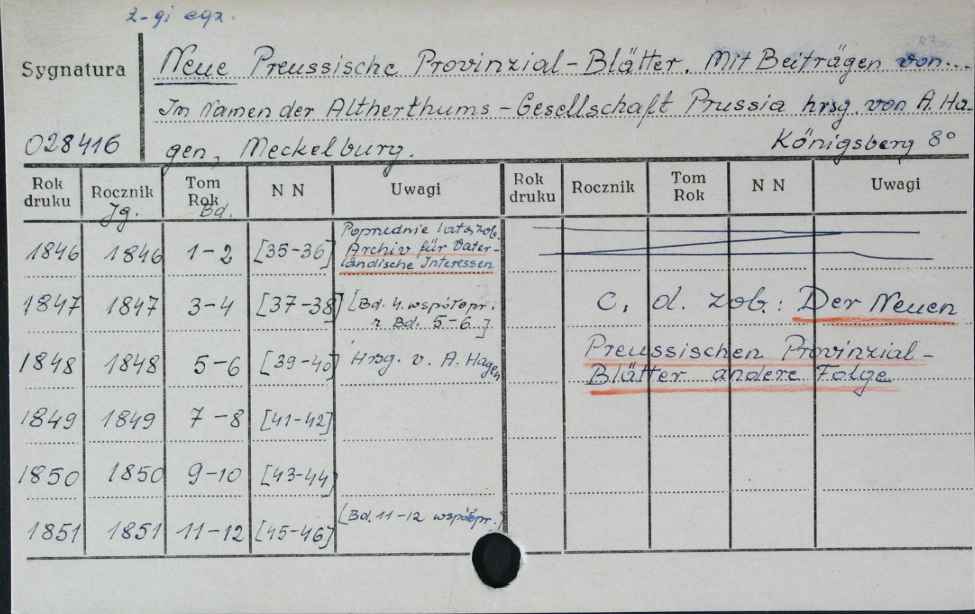 2-gi egz.
Sygnatura
028416
Neue Preussische Provinzial-Blätter. Mit Beiträgen von...
Im Namen der Altherthums-Gesellschaft Prussia hrsg. von A. Ha-
gen, Meckelburg. Königsberg 8°
Rok druku Rocznik Jg. Tom Rok Bd. N N Uwagi Rok druku Rocznik Tom Rok N N Uwagi
1846 1846 1-2 [35-36] Poprzednie lata zob.
Archiv für Vater-
ländische Interessen
1847 1847 3-4 [37-38] [Bd. 4. współopr.
z Bd. 5-6.]
C. d. zob.: Der Neuen
1848 1848 5-6 [39-40] Hrsg. v. A. Hagen
Preussischen Provinzial-
Blätter andere Folge
1849 1849 7-8 [41-42]
1850 1850 9-10 [43-44]
1851 1851 11-12 [45-46] [Bd. 11-12 współopr.]